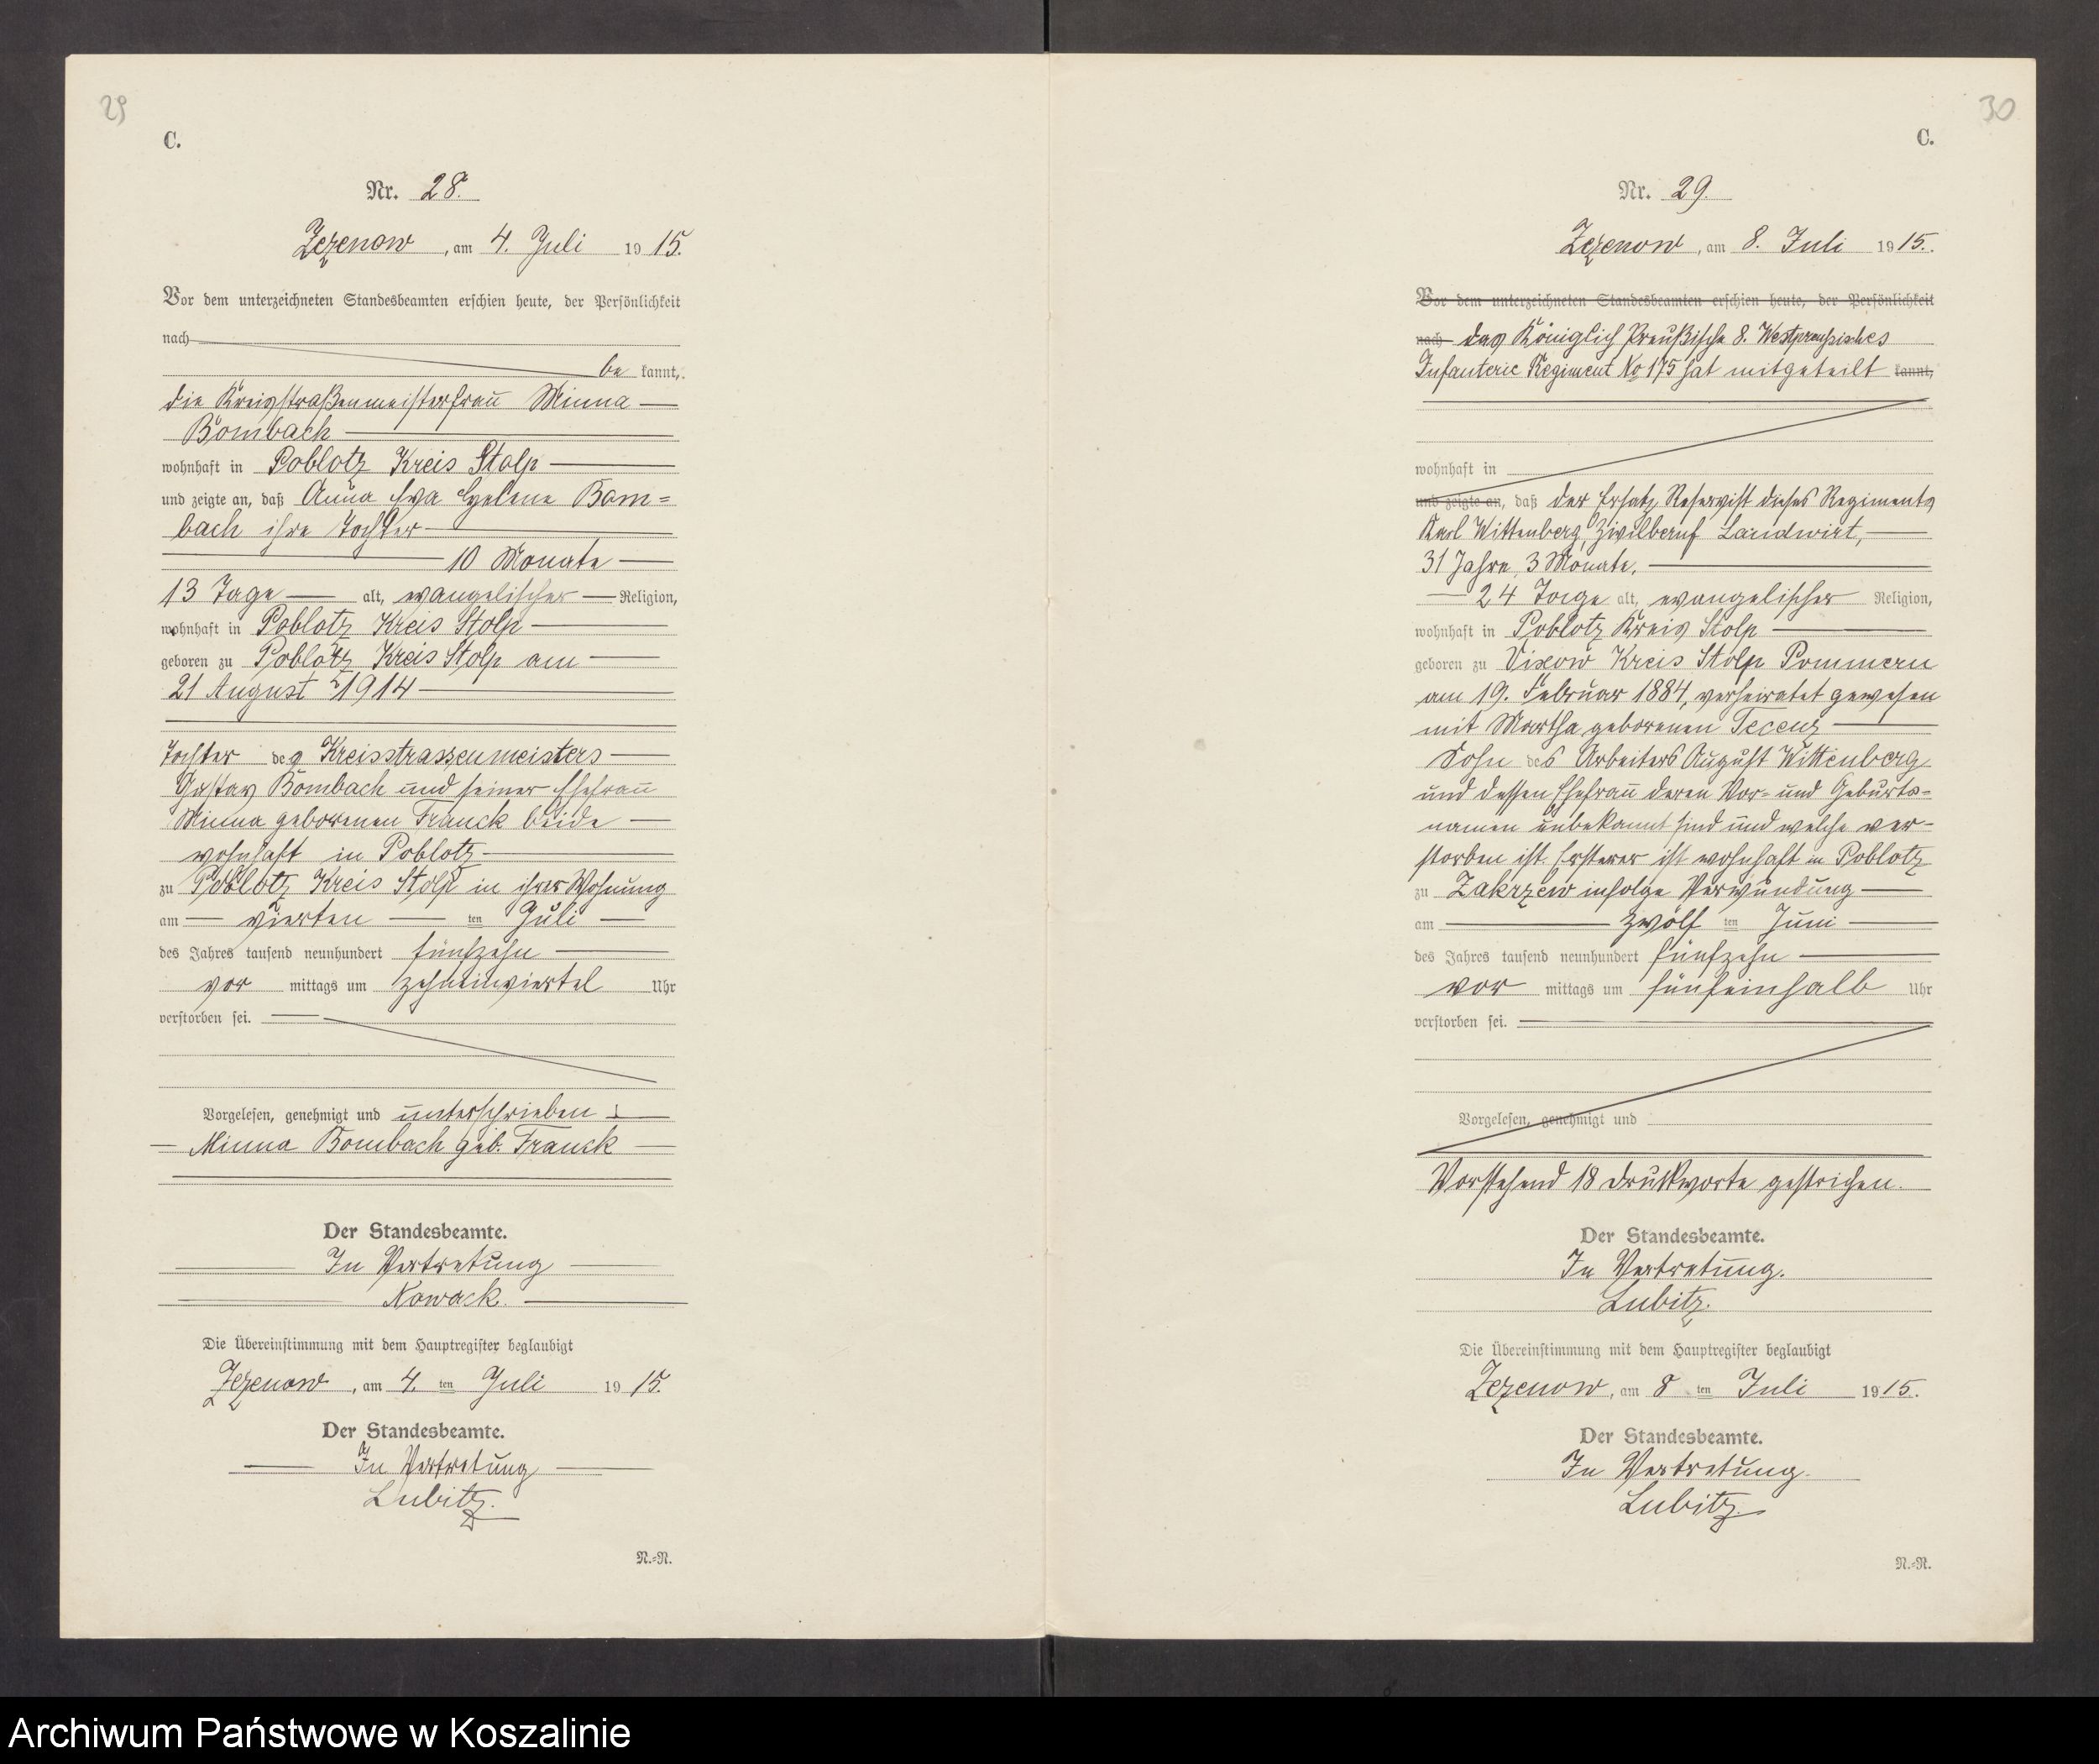 29
C.
Nr. 28.
Zezenow, am 4. Juli 1915.
Vor dem unterzeichneten Standesbeamten erschien heute, der Persönlichkeit
nach
be kannt,
die Kreisstraßenmeisterfrau Minna
Bombach
wohnhaft in Poblotz Kreis Stolp
und zeigte an, daß Anna Eva Helene Bom=
bach ihre Tochter
10 Monate
13 Tage alt, evangelischer Religion,
wohnhaft in Poblotz Kreis Stolp
geboren zu Poblotz Kreis Stolp am
21 August 1914
Tochter des Kreisstrassenmeisters
Gustav Bombach und seiner Ehefrau
Minna geborenen Franck beide
wohnhaft in Poblotz
zu Poblotz Kreis Stolp in ihrer Wohnung
am vierten ten Juli
des Jahres tausend neunhundert fünfzehn
vor mittags um zehneinviertel Uhr
verstorben sei.
Vorgelesen, genehmigt und unterschrieben
Minna Bombach geb. Franck
Der Standesbeamte.
In Vertretung
Nowack.
Die Übereinstimmung mit dem Hauptregister beglaubigt
Zezenow, am 4. ten Juli 1915.
Der Standesbeamte.
In Vertretung
Lubitz.
N.=N.
30
C.
Nr. 29.
Zezenow, am 8. Juli 1915.
Vor dem unterzeichneten Standesbeamten erschien heute, der Persönlichkeit
nach das Königlich Preußische 8. Westpreussisches
Infanterie Regiment No 175 hat mitgeteilt kannt,
wohnhaft in
und zeigte an, daß der Ersatz Reservist dieses Regiments
Karl Wittenberg, Zivilberuf Landwirt,
31 Jahre, 3 Monate,
24 Tage alt, evangelischer Religion,
wohnhaft in Poblotz Kreis Stolp
geboren zu Vixow Kreis Stolp Pommern
am 19. Februar 1884, verheiratet gewesen
mit Martha geborenen Tecenz
Sohn des Arbeiters August Wittenberg
und dessen Ehefrau deren Vor= und Geburts=
namen unbekannt sind und welche ver-
storben ist. Ersterer ist wohnhaft in Poblotz
zu Zakrzew infolge Verwundung
am zwölf ten Juni
des Jahres tausend neunhundert fünfzehn
vor mittags um fünfeinhalb Uhr
verstorben sei.
Vorgelesen, genehmigt und
Vorstehend 18 Druckworte gestrichen.
Der Standesbeamte.
In Vertretung.
Lubitz.
Die Übereinstimmung mit dem Hauptregister beglaubigt
Zezenow, am 8 ten Juli 1915.
Der Standesbeamte.
In Vertretung.
Lubitz.
N.=N.
Archiwum Państwowe w Koszalinie